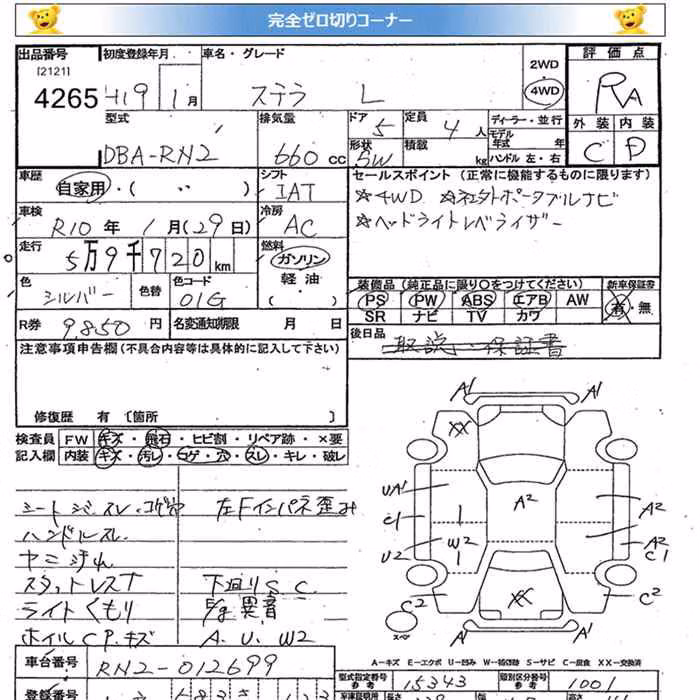 完全ゼロ切りコーナー
出品番号 初度登録年月 車名・グレード 2WD 評価点
[2121]
4265 H19 1月 ステラ L 4WD RA
型式 排気量 ドア 5 定員 4人 ディーラー・並行 外装 内装
モデル年式 年
DBA-RN2 660cc 形状 SW 積載 kg ハンドル 左・右 C D
車歴 自家用・( 〃 ) シフト IAT
セールスポイント(正常に機能するものに限ります)
☆4WD ☆社外ポータブルナビ
☆ヘッドライトレベライザー
車検 R10年1月(29日) 冷房 AC
走行 5万9千720km 燃料 ガソリン
軽油
色 シルバー 色替 色コード 01G ( )
装備品(純正品に限り○をつけてください) 新車保証書
PS PW ABS エアB AW 有・無
SR ナビ TV カワ
R券 9,850円 名変通知期限 月 日
後日品 取説・保証書
注意事項申告欄(不具合内容等は具体的に記入して下さい)
修復歴 有 〔箇所 〕
検査員 FW キズ・飛石・ヒビ割・リペア跡・×要
記入欄 内装 キズ・汚レ・コゲ・穴・スレ・キレ・破レ
左Fインパネ歪み
ハンドルスレ
ヤニ汚れ
スタットレスT 下廻りS、C
ライトくもり E/g異音
ホイルCP、キズ A、U、W2
A1 A1
XX
UA1 A2 A2
C1 A2
U2 W2 C1
C2 XX C2
スペア
A-キズ E-エクボ U-凹み W-補修跡 S-サビ C-腐食 XX-交換済
車台番号 RN2-012699
型式指定番号 参考 15343 類別区分番号 参考 1001
登録番号